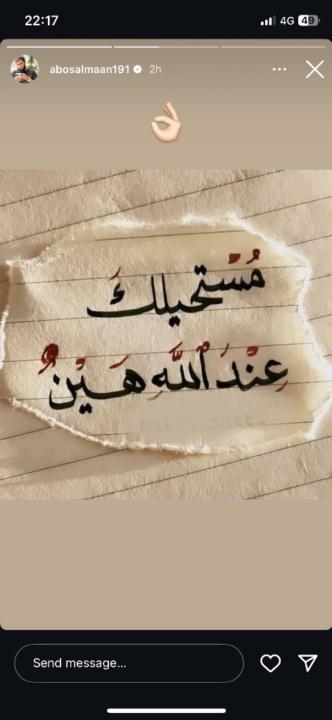 22:17
4G 49
abosalmaan191 2h
مُسْتحيلكَ
عِنْدَ ٱللَّهِ هَيْنٌ
Send message...